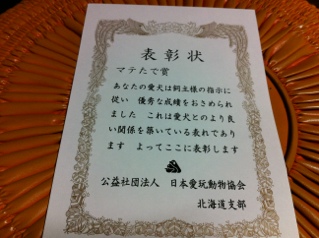 表彰状
マテたで賞
あなたの愛犬は飼主様の指示に
従い 優秀な成績をおさめられ
ました これは愛犬とのより良
い関係を築いている表れであり
ます よってここに表彰します
公益社団法人 日本愛玩動物協会
北海道支部